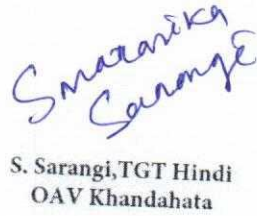 Smaranika
Sarangi
S. Sarangi,TGT Hindi
OAV Khandahata